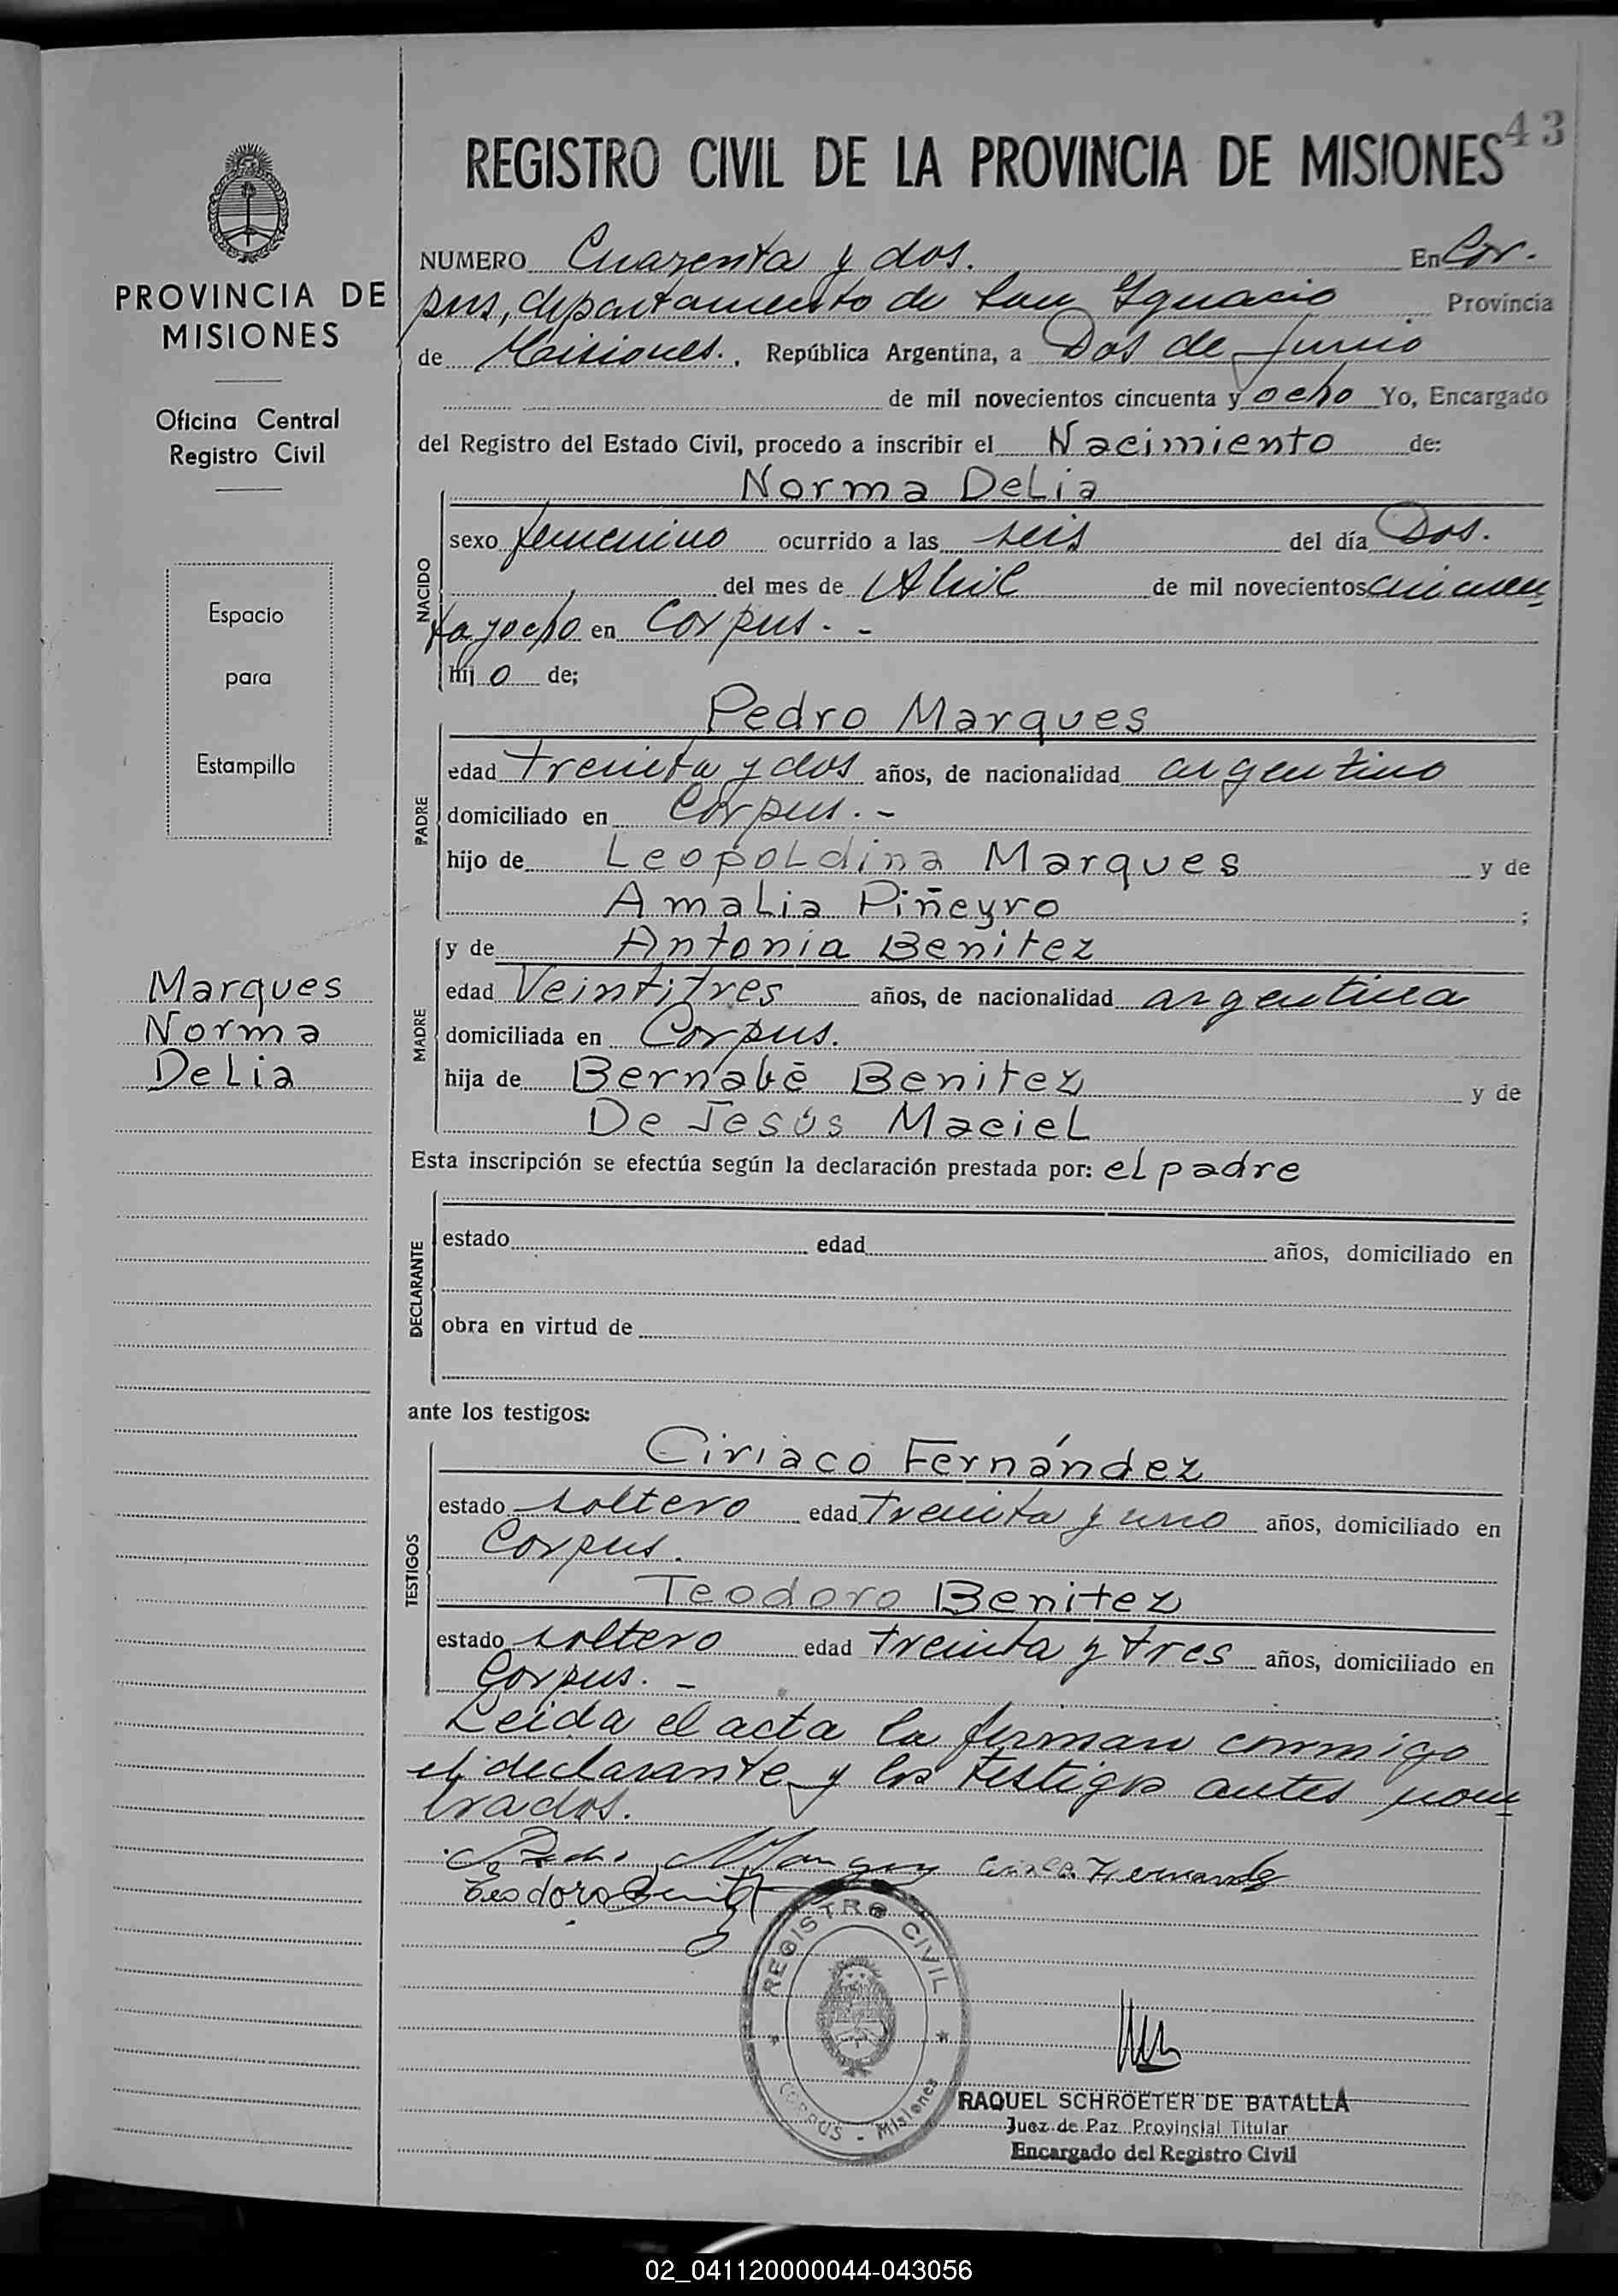 43
REGISTRO CIVIL DE LA PROVINCIA DE MISIONES
PROVINCIA DE
MISIONES
Oficina Central
Registro Civil
Espacio
para
Estampilla
Marques
Norma
Delia
NUMERO Cuarenta y dos. En Cor-
pus, departamento de San Ignacio Provincia
de Misiones., República Argentina, a Dos de Junio
de mil novecientos cincuenta y ocho Yo, Encargado
del Registro del Estado Civil, procedo a inscribir el Nacimiento de:
NACIDO
Norma Delia
sexo femenino ocurrido a las seis del día Dos.
del mes de Abril de mil novecientos cincuen
ta y ocho en Corpus. -
hij o de;
PADRE
Pedro Marques
edad treinta y dos años, de nacionalidad argentino
domiciliado en Corpus. -
hijo de Leopoldina Marques y de
Amalia Piñeyro ;
MADRE
y de Antonia Benitez
edad Veintitres años, de nacionalidad argentina
domiciliada en Corpus.
hija de Bernabé Benitez y de
De Jesús Maciel
Esta inscripción se efectúa según la declaración prestada por: el padre
DECLARANTE
estado edad años, domiciliado en
obra en virtud de
ante los testigos:
TESTIGOS
Ciriaco Fernández
estado soltero edad treinta y uno años, domiciliado en
Corpus.
Teodoro Benitez
estado soltero edad treinta y tres años, domiciliado en
Corpus. -
Leida el acta la firman conmigo
el declarante y los testigos antes nom
brados.
Pedro Marques
Teodoro Benitez
REGISTRO CIVIL
CORPUS - Misiones
RAQUEL SCHROETER DE BATALLA
Juez de Paz Provincial Titular
Encargado del Registro Civil
02_041120000044-043056